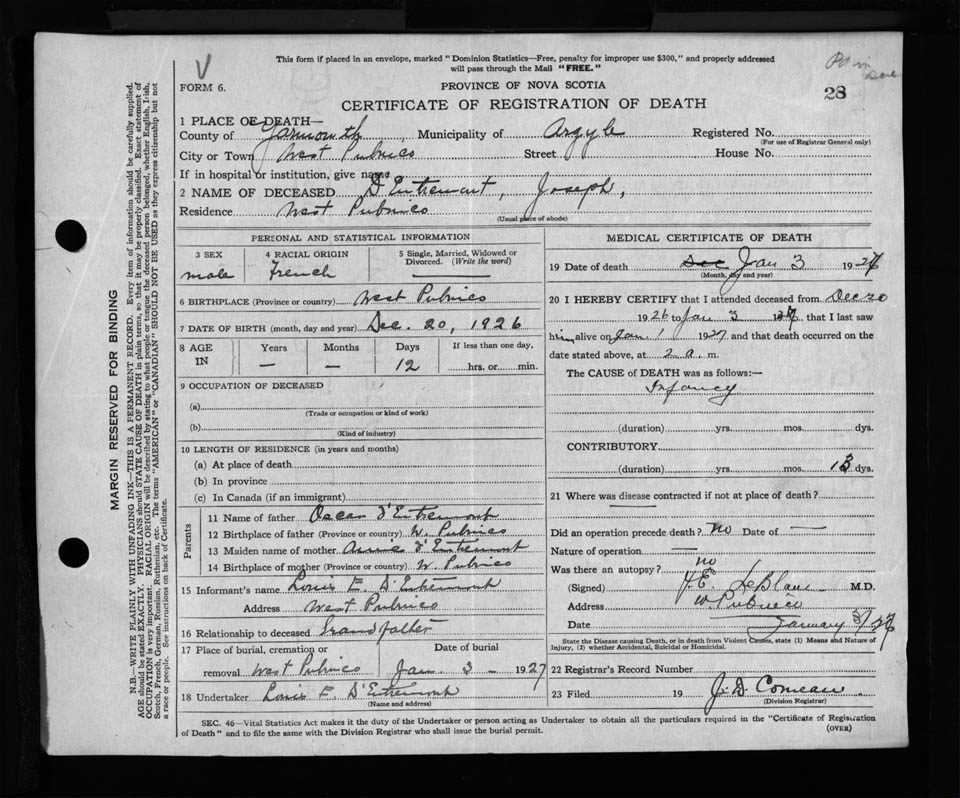 This form if placed in an envelope, marked "Dominion Statistics—Free, penalty for improper use $300," and properly addressed
will pass through the Mail "FREE."
V
FORM 6.
PROVINCE OF NOVA SCOTIA
28
CERTIFICATE OF REGISTRATION OF DEATH
1 PLACE OF DEATH—
County of Yarmouth Municipality of Argyle Registered No.
(For use of Registrar General only)
City or Town West Pubnico Street House No.
If in hospital or institution, give name
2 NAME OF DECEASED D'Entremont, Joseph,
Residence West Pubnico
(Usual place of abode)
PERSONAL AND STATISTICAL INFORMATION
3 SEX
male
4 RACIAL ORIGIN
French
5 Single, Married, Widowed or
Divorced. (Write the word)
6 BIRTHPLACE (Province or country) West Pubnico
7 DATE OF BIRTH (month, day and year) Dec. 20, 1926
8 AGE IN Years Months Days If less than one day,
— — 12 hrs. or min.
9 OCCUPATION OF DECEASED
(a)
(Trade or occupation or kind of work)
(b)
(Kind of industry)
10 LENGTH OF RESIDENCE (in years and months)
(a) At place of death
(b) In province
(c) In Canada (if an immigrant)
Parents
11 Name of father Oscar d'Entremont
12 Birthplace of father (Province or country) W. Pubnico
13 Maiden name of mother Annie d'Entremont
14 Birthplace of mother (Province or country) W. Pubnico
15 Informant's name Louis E. D'Entremont
Address West Pubnico
16 Relationship to deceased Grandfather
17 Place of burial, cremation or Date of burial
removal West Pubnico Jan. 3 - 1927
18 Undertaker Louis E. D'Entremont
(Name and address)
MEDICAL CERTIFICATE OF DEATH
19 Date of death Dec Jan 3 1927
(Month, day and year)
20 I HEREBY CERTIFY that I attended deceased from Dec 20
1926 to Jan 3 1927, that I last saw
him alive on Jan 1 1927 and that death occurred on the
date stated above, at 2 a. m.
The CAUSE of DEATH was as follows:—
Infancy
(duration) yrs. mos. dys.
CONTRIBUTORY
(duration) yrs. mos. 13 dys.
21 Where was disease contracted if not at place of death?
Did an operation precede death? No Date of —
Nature of operation —
Was there an autopsy? no
(Signed) LeBlanc M.D.
Address W. Pubnico
Date January 3/27
State the Disease causing Death, or in death from Violent Causes, state (1) Means and Nature of
Injury, (2) whether Accidental, Suicidal or Homicidal.
22 Registrar's Record Number
23 Filed 19 J. D. Comeau
(Division Registrar)
SEC. 46—Vital Statistics Act makes it the duty of the Undertaker or person acting as Undertaker to obtain all the particulars required in the "Certificate of Registration
of Death" and to file the same with the Division Registrar who shall issue the burial permit.
(OVER)
MARGIN RESERVED FOR BINDING
N.B.—WRITE PLAINLY WITH UNFADING INK—THIS IS A PERMANENT RECORD. Every item of information should be carefully supplied.
AGE should be stated EXACTLY. PHYSICIANS should STATE CAUSE OF DEATH in plain terms, so that it may be properly classified. Exact statement of
OCCUPATION is very important. RACIAL ORIGIN will be described by stating to what people or tongue the deceased person belonged, whether English, Irish,
Scotch, French, German, Russian, Ruthenian, etc. The terms "AMERICAN" or "CANADIAN" SHOULD NOT BE USED as they express citizenship but not
a race or people. See instructions on back of Certificate.